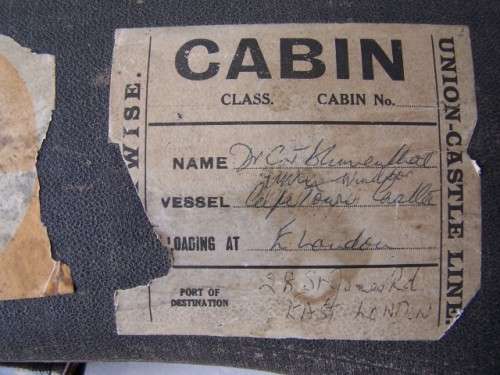 CABIN
CLASS. CABIN No.
WISE.
NAME Dr C J Blumenthal
VESSEL Capetown Castle
LOADING AT E London
PORT OF DESTINATION 28 St James Rd
EAST LONDON
UNION-CASTLE LINE.